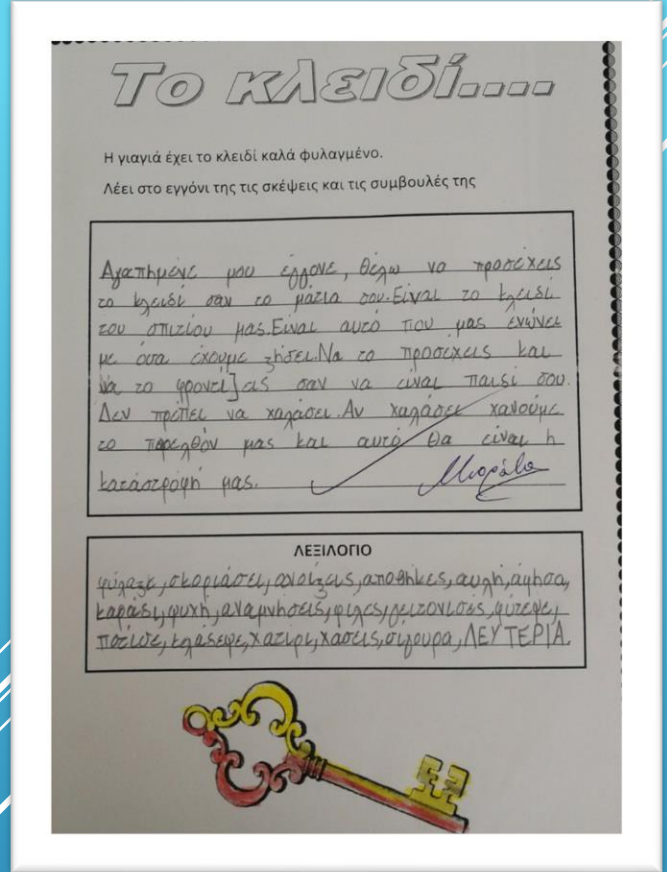 Το κλειδί....
Η γιαγιά έχει το κλειδί καλά φυλαγμένο.
Λέει στο εγγόνι της τις σκέψεις και τις συμβουλές της
Αγαπημένε μου έγγονε, θέλω να προσέχεις
το κλειδί σαν το μάτια σου. Είναι το κλειδί
του σπιτιού μας. Είναι αυτό που μας ενώνει
με όσα έχουμε ζήσει. Να το προσέχεις και
να το φροντίζεις σαν να είναι παιδί σου.
Δεν πρέπει να χαλάσει. Αν χαλάσει χανούμε
το παρελθόν μας και αυτό θα είναι η
καταστροφή μας. Μπράβο
ΛΕΞΙΛΟΓΙΟ
φύλαξε, σκοριάσει, ανοίξεις, αποθήκες, αυλή, άφησα,
καράβι, ψυχή, αναμνήσεις, φίλες, γειτόνισες, φύτεψε,
πότισε, κλάδεψε, χατίρι, χάσεις, σίγουρα, ΛΕΥΤΕΡΙΑ.